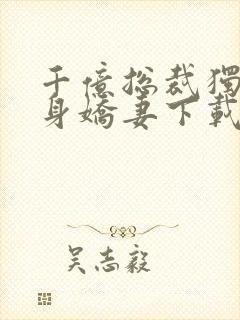 千億總裁獨
身嬌妻下載
吴志毅